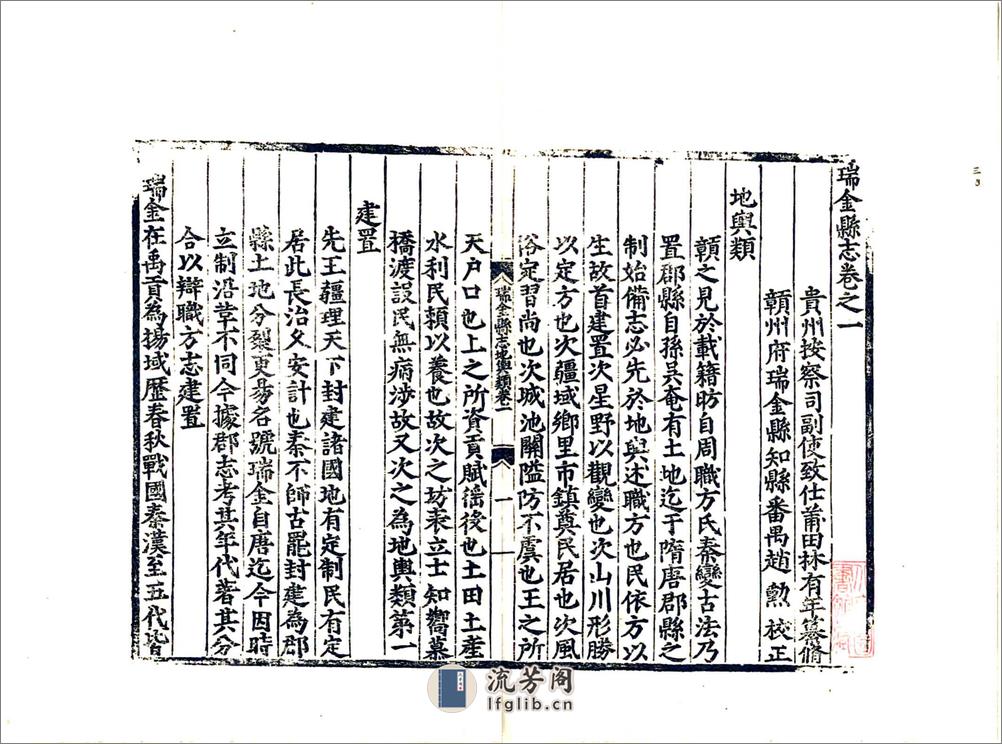 瑞金縣志卷之一
貴州按察司副使致仕莆田林有年纂脩
贛州府瑞金縣知縣番禺趙勲校正
地輿類
贛之見於載籍昉自周職方氏秦變古法乃
置郡縣自孫吳奄有土地迄于隋唐郡縣之
制始備志必先於地輿述職方也民依方以
生故首建置次星野以觀變也次山川形勝
以定方也次疆域鄉里市鎮奠民居也次風
俗定習尚也次城池關隘防不虞也王之所
瑞金縣志地輿類卷一
一
天户口也上之所資貢賦徭役也土田土産
水利民頼以養也故次之坊表立士知嚮慕
橋渡設民無病涉故又次之為地輿類第一
建置
先王疆理天下封建諸國地有定制民有定
居此長治久安計也秦不師古罷封建為郡
縣土地分裂更易名號瑞金自唐迄今因時
立制沿革不同今據郡志考其年代著其分
合以辯職方志建置
瑞金在禹貢為揚域歷春秋戰國秦漢至五代皆
流芳阁
lfglib.cn